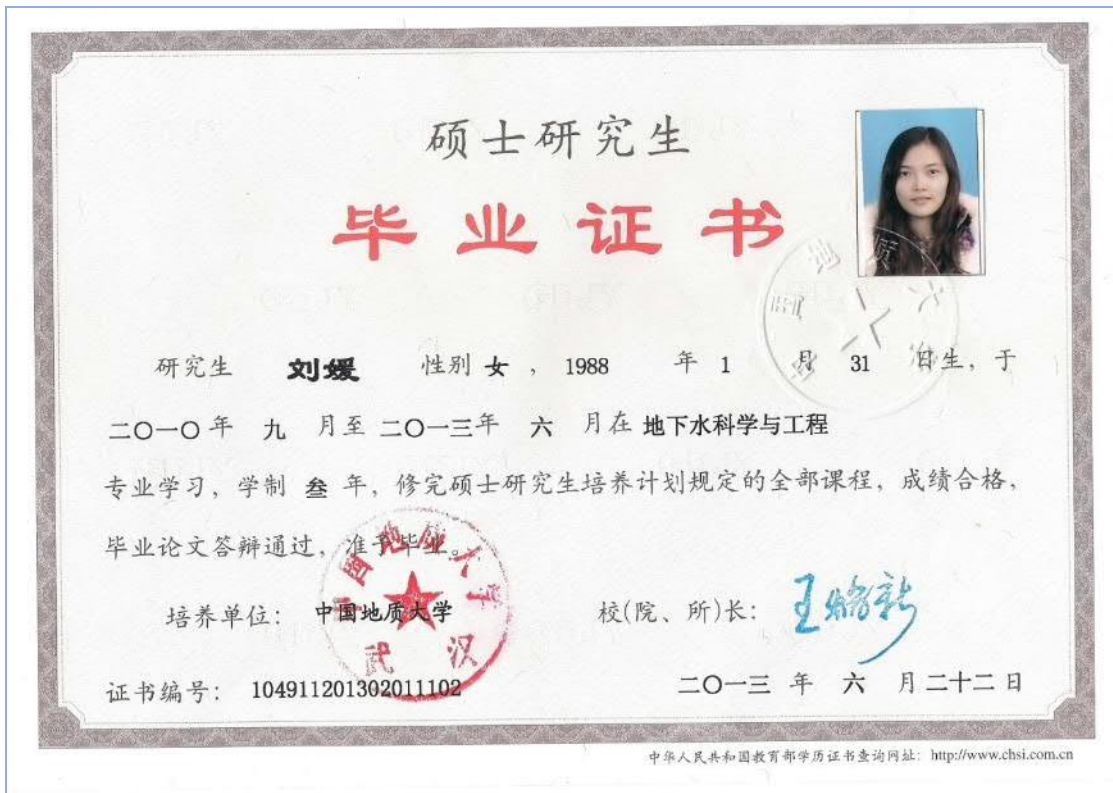 硕士研究生
毕业证书
研究生 刘媛 性别 女 , 1988 年 1 月 31 日生, 于
二〇一〇年 九 月至 二〇一三年 六 月在 地下水科学与工程
专业学习, 学制 叁 年, 修完硕士研究生培养计划规定的全部课程, 成绩合格,
毕业论文答辩通过, 准予毕业。
中国地质大学
武汉
培养单位: 中国地质大学 校(院、所)长: 王焰新
证书编号: 104911201302011102 二〇一三 年 六 月 二十二 日
中华人民共和国教育部学历证书查询网址: http://www.chsi.com.cn